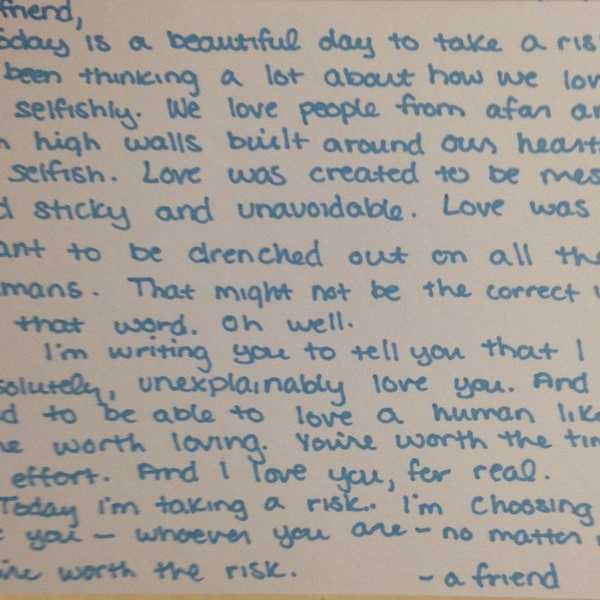 friend,
oday is a beautiful day to take a ris
been thinking a lot about how we lov
selfishly. We love people from afar an
high walls built around our heart
selfish. Love was created to be mes
d sticky and unavoidable. Love was
ant to be drenched out on all the
mans. That might not be the correct
that word. Oh well.
I'm writing you to tell you that I
solutely, unexplainably love you. And
d to be able to love a human lik
re worth loving. You're worth the tim
effort. And I love you, for real.
Today I'm taking a risk. I'm choosing
e you - whoever you are - no matter
're worth the risk.
- a friend